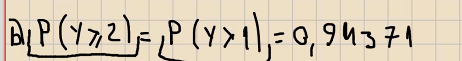 a) P(Y⩾2) = P(Y>1) = 0,94371